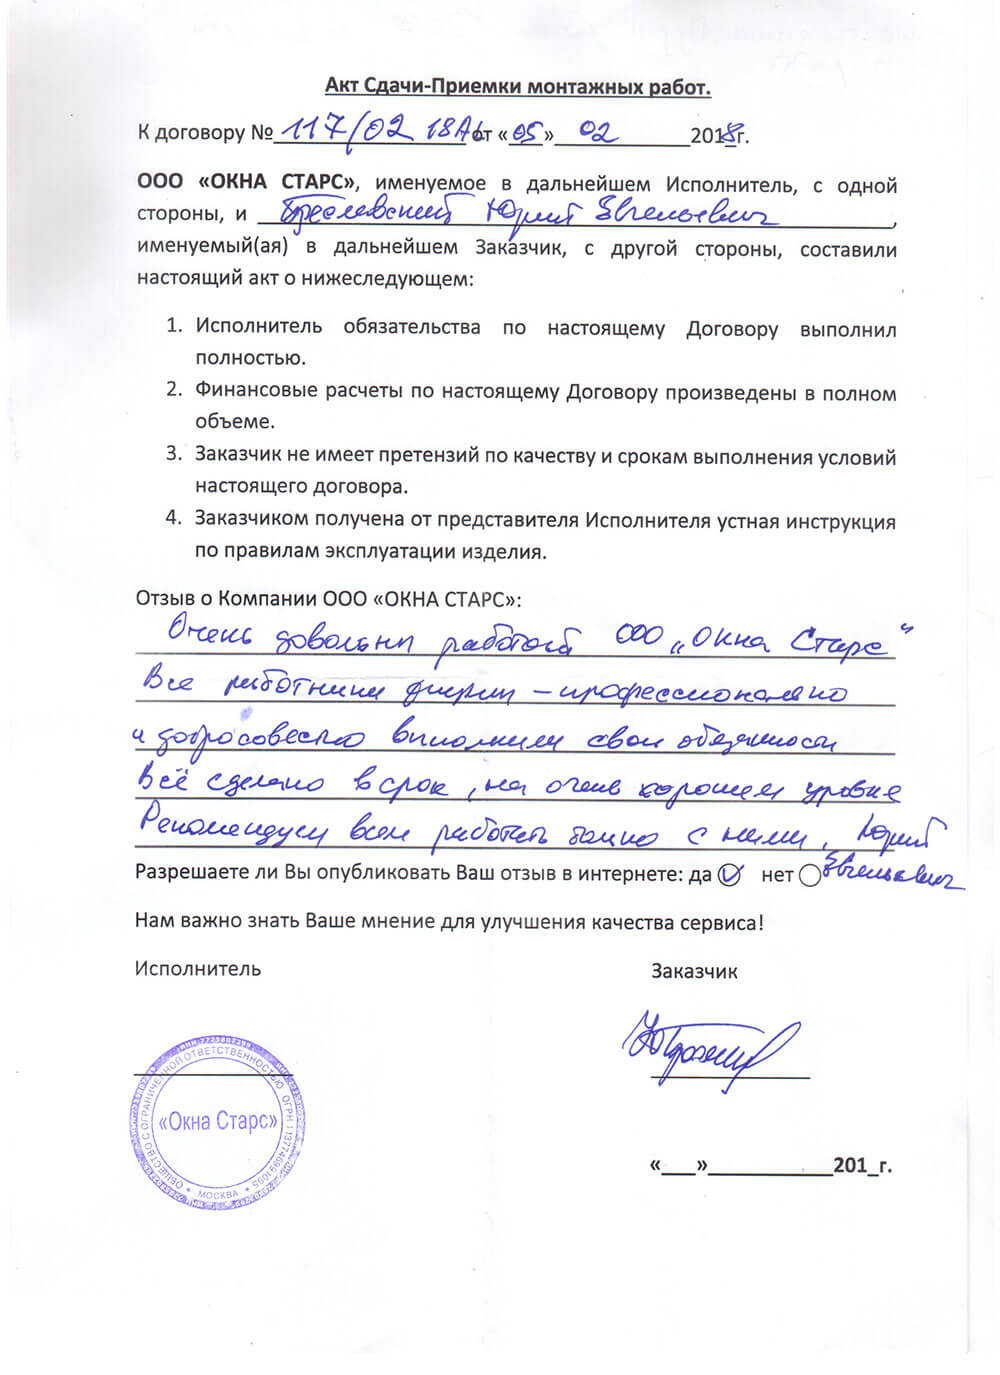 Акт Сдачи-Приемки монтажных работ.
К договору № 117/02 18 от «05» 02 2018г.
ООО «ОКНА СТАРС», именуемое в дальнейшем Исполнитель, с одной
стороны, и Юрий Евгеньевич,
именуемый(ая) в дальнейшем Заказчик, с другой стороны, составили
настоящий акт о нижеследующем:
1. Исполнитель обязательства по настоящему Договору выполнил
полностью.
2. Финансовые расчеты по настоящему Договору произведены в полном
объеме.
3. Заказчик не имеет претензий по качеству и срокам выполнения условий
настоящего договора.
4. Заказчиком получена от представителя Исполнителя устная инструкция
по правилам эксплуатации изделия.
Отзыв о Компании ООО «ОКНА СТАРС»:
Очень довольны работой ООО „Окна Старс“
Все работники фирмы – профессионально
и добросовестно выполнили свои обязанности
Всё сделано в срок, на очень хорошем уровне
Рекомендуем всем работать только с ними, Юрий
Евгеньевич
Разрешаете ли Вы опубликовать Ваш отзыв в интернете: да нет
Нам важно знать Ваше мнение для улучшения качества сервиса!
Исполнитель Заказчик
«Окна Старс»
ОБЩЕСТВО С ОГРАНИЧЕННОЙ ОТВЕТСТВЕННОСТЬЮ
МОСКВА
«___»___________201_г.